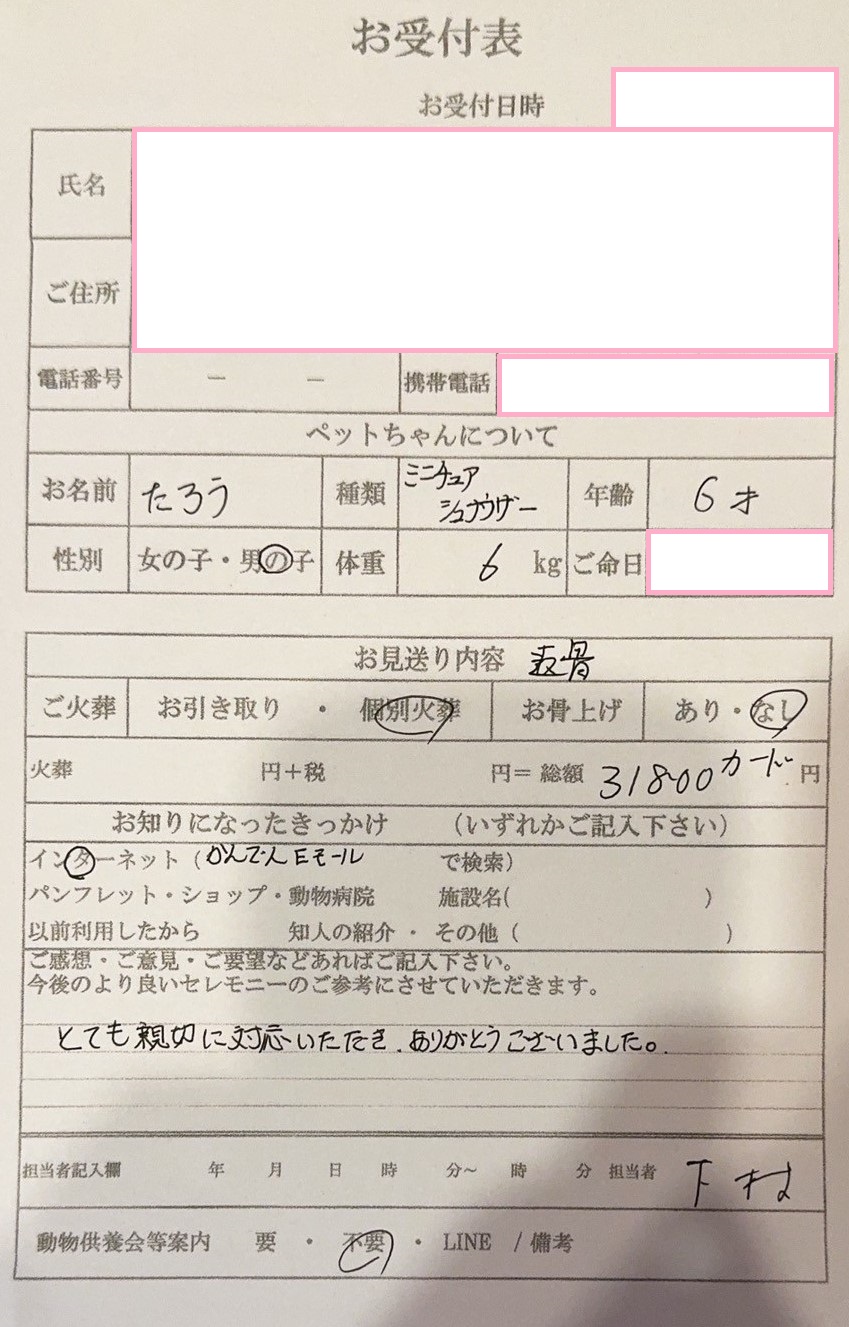 お受付表
お受付日時
氏名
ご住所
電話番号 － － 携帯電話
ペットちゃんについて
お名前 たろう 種類 ミニチュア シュナウザー 年齢 6才
性別 女の子・男の子 体重 6 kg ご命日
お見送り内容 骨
ご火葬 お引き取り ・ 個別火葬 お骨上げ あり・なし
火葬 円＋税 円＝ 総額 31800 カード 円
お知りになったきっかけ （いずれかご記入下さい）
インターネット（かんでんEモール で検索）
パンフレット・ショップ・動物病院 施設名( )
以前利用したから 知人の紹介 ・ その他（ ）
ご感想・ご意見・ご要望などあればご記入下さい。
今後のより良いセレモニーのご参考にさせていただきます。
とても親切に対応いただき、ありがとうございました。
担当者記入欄 年 月 日 時 分～ 時 分 担当者 下村
動物供養会等案内 要 ・ 不要 ・ LINE / 備考